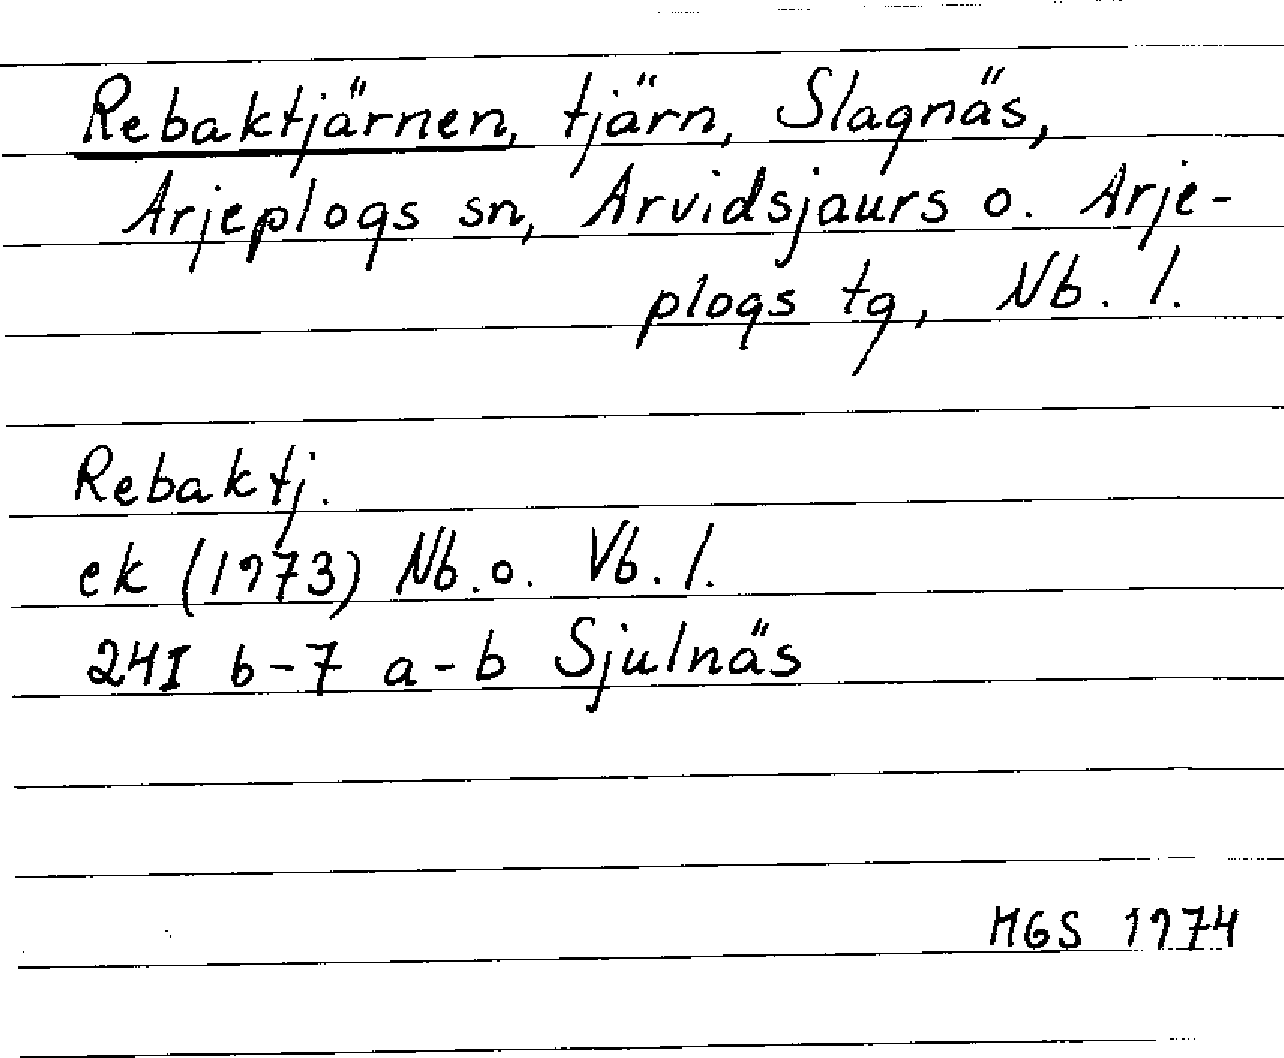 Rebaktjärnen, tjärn, Slagnäs,
Arjeplogs sn, Arvidsjaurs o. Arje-
plogs tg, Nb. l.
Rebaktj.
ek (1973) Nb. o. Vb. l.
24I 6-7 a-b Sjulnäs
MGS 1974